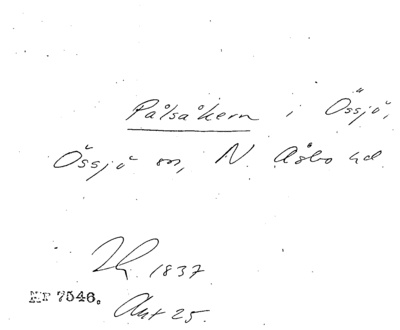 Pålsåkern i Össjö,
Össjö sn, N. Åsbo hd
1837
MF 7546.
Akt 25.